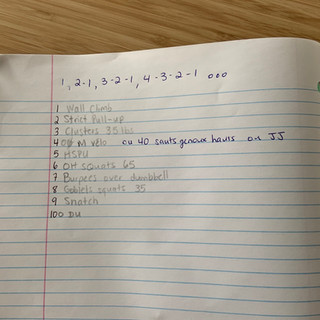 1, 2-1, 3-2-1, 4-3-2-1 ooo
1 Wall Climb
2 Strict Pull-up
3 Clusters 35 lbs
400 M vélo ou 40 sauts genoux hauts ou JJ
5 HSPU
6 OH squats 65
7 Burpees over dumbbell
8 Goblets squats 35
9 Snatch
100 DU